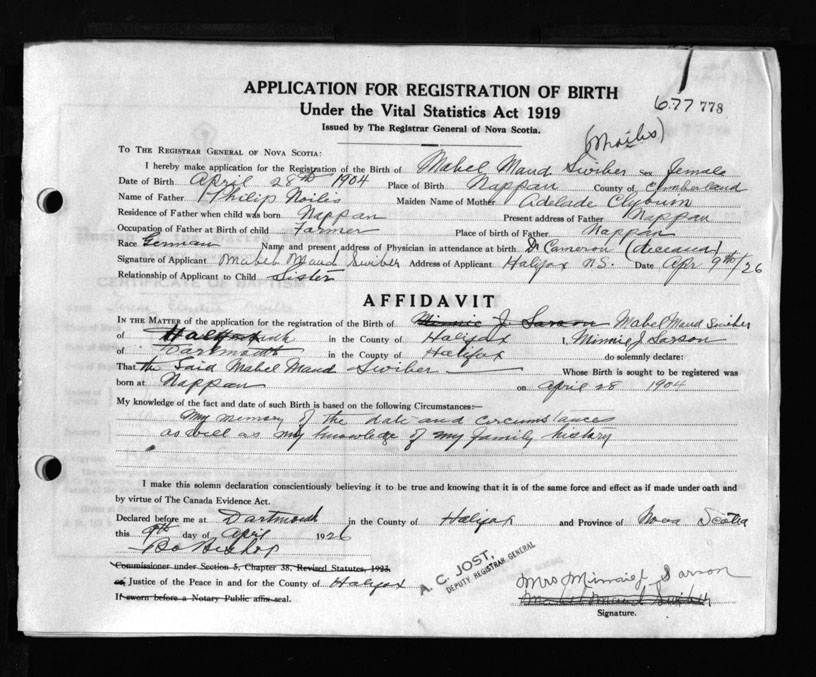 APPLICATION FOR REGISTRATION OF BIRTH
Under the Vital Statistics Act 1919
Issued by The Registrar General of Nova Scotia.
677 778
(Noiles)
TO THE REGISTRAR GENERAL OF NOVA SCOTIA:
I hereby make application for the Registration of the Birth of Mabel Maud Swiber Sex female
Date of Birth April 28th 1904 Place of Birth Nappan County of Cumberland
Name of Father Philip Noiles Maiden Name of Mother Adelade Clyburn
Residence of Father when child was born Nappan Present address of Father Nappan
Occupation of Father at Birth of child Farmer Place of birth of Father Nappan
Race German Name and present address of Physician in attendance at birth Dr Cameron (deceased)
Signature of Applicant Mabel Maud Swiber Address of Applicant Halifax N.S. Date Apr 9th/26
Relationship of Applicant to Child Sister
AFFIDAVIT
IN THE MATTER of the application for the registration of the Birth of Minnie J. Sarson Mabel Maud Swiber
of in the County of Halifax I, Minnie J Sarson
of Dartmouth in the County of Halifax do solemnly declare:
That the said Mabel Maud Swiber Whose Birth is sought to be registered was
born at Nappan on April 28 1904
My knowledge of the fact and date of such Birth is based on the following Circumstances:—
My memory of the date and circumstances
as well as my knowledge of my family history
I make this solemn declaration conscientiously believing it to be true and knowing that it is of the same force and effect as if made under oath and
by virtue of The Canada Evidence Act.
Declared before me at Dartmouth in the County of Halifax and Province of Nova Scotia
this 9th day of April 1926
Bishop
Commissioner under Section 5, Chapter 38, Revised Statutes, 1923.
or Justice of the Peace in and for the County of Halifax
If sworn before a Notary Public affix seal.
A. C. JOST,
DEPUTY REGISTRAR GENERAL
Mrs Minnie J Sarson
Mabel Maud Swiber
Signature.